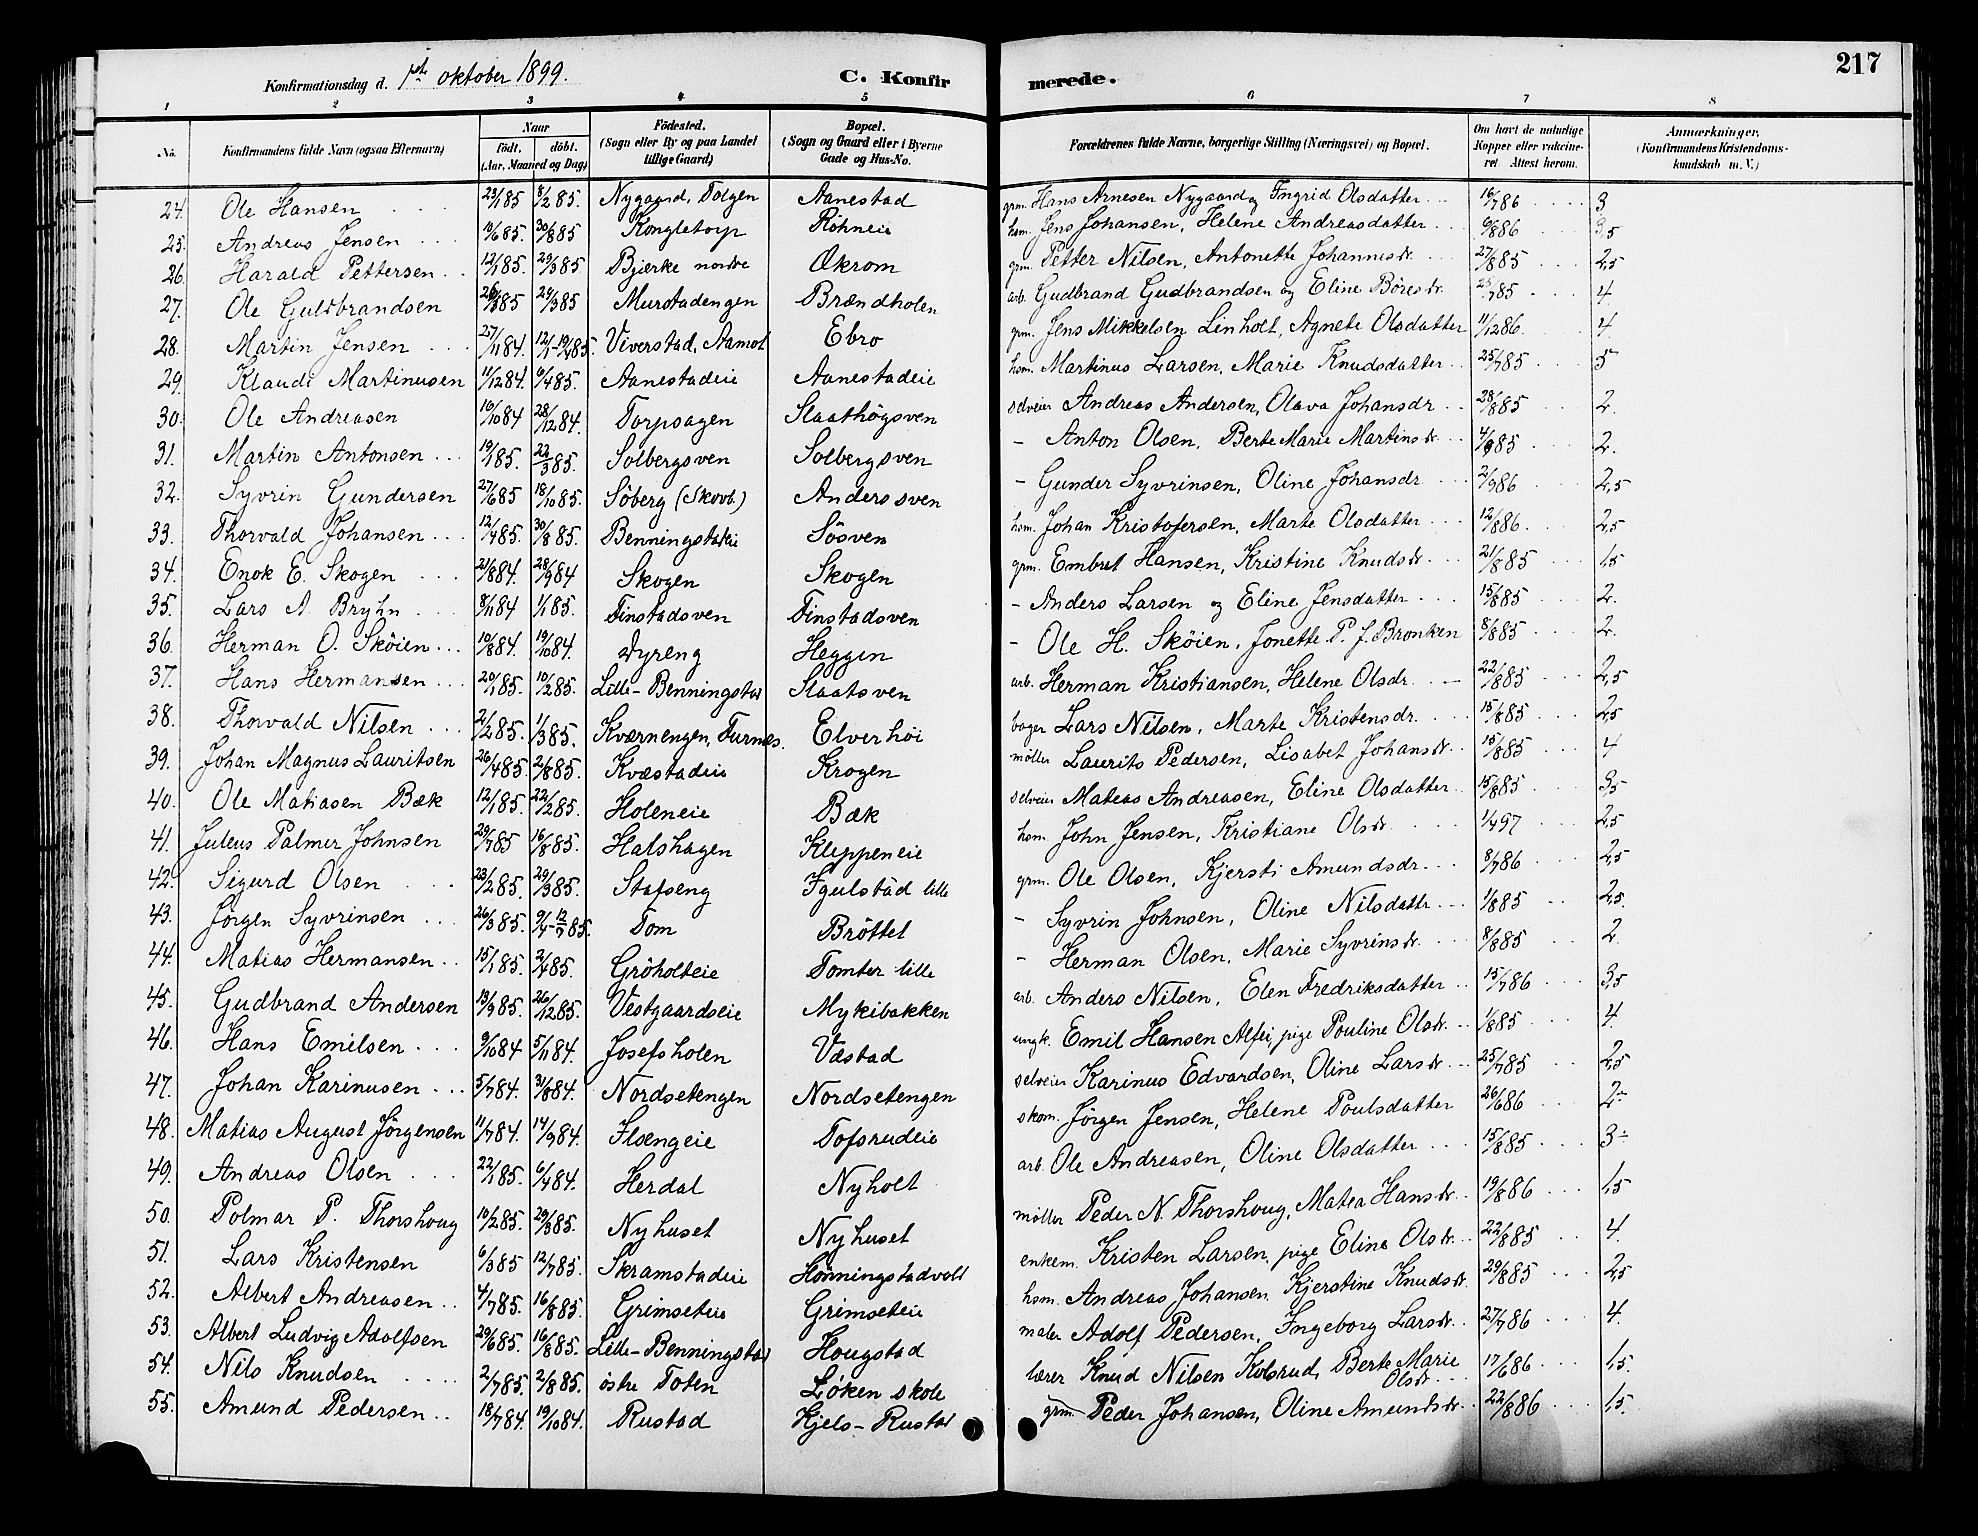 217
Konfirmationsdag d. 1ste oktober 1899. C. Konfirmerede.
1 2 3 4 5 6 7 8
No. Konfirmandens fulde Navn (ogsaa Efternavn) Naar født, døbt. (Aar, Maaned og Dag) Fødested. (Sogn eller By og paa Landet tillige Gaard) Bopæl. (Sogn og Gaard eller i Byerne Gade og Hus-No. Forældrenes fulde Navne, borgerlige Stilling (Næringsvei) og Bopæl. Om havt de naturlige Kopper eller vakcineret. Attest herom. Anmærkninger. (Konfirmandens Kristendomskundskab m. V.)
24. Ole Hansen 23/1 85 8/2 85. Nygaard, Tolgen Aanestad grm. Hans Arnesen Nygaard og Ingrid Olsdatter 16/7 86 3
25. Andreas Jensen 10/6 85. 30/8 85 Kongletorp Röhneie hsm. Jens Johansen, Helene Andreasdatter 6/8 86 3,5
26. Harald Pettersen 12/1 85. 29/3 85 Bjerke nordre Økrom grm. Petter Nilsen, Antonette Johannesdr. 27/8 85 2,5
27. Ole Guldbrandsen 24/3 85 Murstadengen Brændholen arb. Gudbrand Gudbrandsen og Eline Böresdr. 25/7 85 4
28. Martin Jensen 27/11 84. 12/1-19/4 85. Viverstad, Aamot Ebro grm. Jens Mikkelsen Linholt, Agnete Olsdatter 11/12 86 4
29. Klaudi Martinusen 11/12 84. 6/4 85. Aanestadeie Aanestadeie hsm. Martinus Larsen, Marie Knudsdatter 25/7 85 5
30. Ole Andreasen 16/10 84 28/12 84. Torpsagen Slaathögsven selveier Andreas Andersen, Olava Johansdr 28/8 85 2.
31. Martin Antonsen 19/1 85. 22/3 85. Solbergsven Solbergsven - Anton Olsen, Berte Marie Martinsdr. 4/9 85 2.
32. Syvrin Gundersen 27/6 85 18/10 85. Söberg (Skovb.) Anderssven - Gunder Syvrinsen, Oline Johansdr 2/9 86 2,5
33. Thorvald Johansen 12/4 85. 30/8 85. Benningstadeie Sösven hsm. Johan Kristofersen, Marte Olsdatter 12/8 86. 2,5
34. Enok E. Skogen 21/8 84. 28/9 84 Skogen Skogen grm. Embret Hansen, Kristine Knudsdr. 21/8 85 1,5
35. Lars A. Bryhn 8/11 84 1/1 85. Finstadsven Finstadsven - Anders Larsen og Eline Jensdatter 15/8 85 2.
36. Herman O. Sköien 10/8 84. 19/10 84. Dyreng Heggen - Ole H. Sköien, Jonette P. f. Bronken 8/8 85 2.
37. Hans Hermansen 20/1 85. 10/2 85. Lille-Benningstad Slaatsven arb. Herman Kristiansen, Helene Olsdr. 22/8 85 2,5
38. Thorvald Nilsen 2/2 85. 1/3 85. Kværnengen, Furnes. Elverhöi bager Lars Nilsen, Marte Kristensdr. 15/8 85 2,5
39. Johan Magnus Lauritsen 26/4 85. 2/8 85. Kvæstadeie Krogen möller Laurits Pedersen, Lisabet Johansdr. 15/8 85 4
40. Ole Matiasen Bæk 12/1 85. 22/2 85. Holeneie Bæk selveier Mateas Andreasen, Eline Olsdatter 15/8 85 3,5
41. Juleus Palmer Johnsen 29/7 85 16/8 85. Halshagen Kleppeneie hsm. John Jensen, Kristiane Olsdr. 1/4 97 2,5
42. Sigurd Olsen 23/2 85. 29/3 85. Stafseng Igulstad lille grm. Ole Olsen, Kjersti Amundsdr. 8/7 86 2,5
43. Jørgen Syvrinsen 26/3 85. 9/4-12/7 85. Tom Bröttet - Syvrin Johnsen, Oline Nilsdattr 1/8 85 2,5.
44. Matias Hermansen 15/1 85. 2/4 85. Gröholteie Tomter lille - Herman Olsen, Marie Syvrinsdr. 8/8 85 2
45. Gudbrand Andersen 13/9 85. 26/12 85. Vestgaardseie Mykibakken arb. Anders Nilsen, Elen Fredriksdatter 15/7 86 3,5
46. Hans Emilsen 9/10 84 5/11 84. Josefsholen Væstad ungk. Emil Hansen Alfei, pige Pouline Olsdr. 1/8 85 4.
47. Johan Karinusen 5/7 84. 31/8 84. Nordsetengen Nordsetengen selveier Karinus Edvardsen, Oline Larsdr. 25/7 85 2,5
48. Matias August Jörgensen 11/7 84. 14/9 84. Ilsengeie Tofsrudeie skom. Jörgen Jensen, Helene Poulsdatter 26/6 86 2÷
49. Andreas Olsen 22/1 85. 6/4 84. Herdal Nyholt arb. Ole Andreasen, Oline Olsdatter 15/8 85 3÷
50. Polmar P. Thorshoug 10/2 85. 29/3 85. Nyhuset Nyhuset möller Peder N. Thorshoug, Matea Hansdr. 19/8 86 1,5
51. Lars Kristensen 6/3 85 12/7 85. Skramstadeie Hönningstadvolt enkem. Kristen Larsen, pige Eline Olsdr. 22/8 85 4.
52. Albert Andreasen 4/7 85. 16/8 85. Grimseteie Grimseteie hsm. Andreas Johansen, Kjerstine Knudsdr. 29/8 85 2,5
53. Albert Ludvig Adolfsen 29/6 85. 16/8 85. Lille-Benningstad Hougstad maler Adolf Pedersen, Ingeborg Larsdr. 27/7 86 4.
54. Nils Knudsen 2/7 85. 2/8 85. östre Toten Löken skole lærer Knud Nilsen Kolsrud, Berte Marie Olsdr. 17/6 86 1,5.
55. Amund Pedersen 18/7 84. 19/10 84. Rustad Kjels-Rustad grm. Peder Johansen, Oline Amundsdr. 22/8 86 1,5.